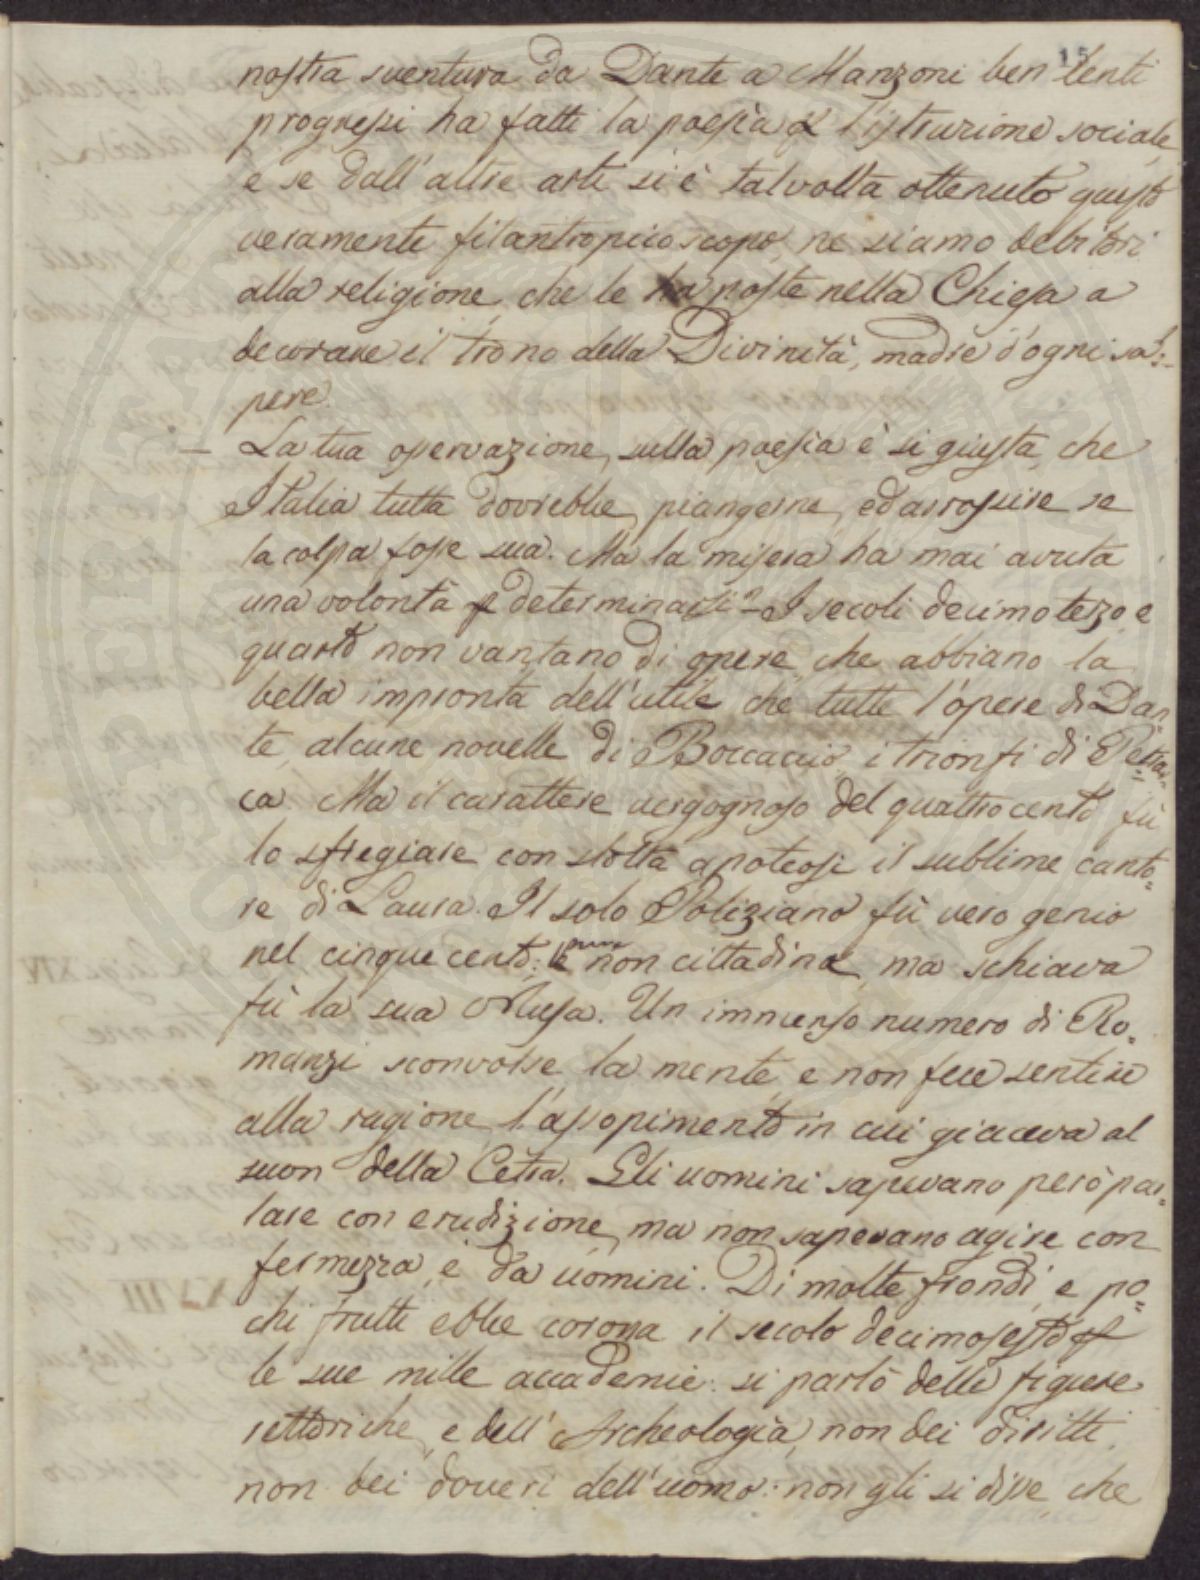 15
nostra sventura da Dante a Manzoni ben lenti
progressi ha fatti la poesia p l'istruzione sociale,
e se dall'altre arti si è talvolta ottenuto questo
veramente filantropico scopo, ne siamo debitori
alla religione, che le ha poste nella Chiesa a
decorare il trono della Divinità, madre d'ogni sa=
pere.
— La tua osservazione sulla poesia è si giusta, che
Italia tutta dovrebbe piangerne, ed arrossire se
la colpa fosse sua. Ma la misera ha mai avuta
una volontà p determinarsi? — I secoli decimoterzo e
quarto non vantano di opere, che abbiano la
bella impronta dell'utile che tutte l'opere di Dan=
te, alcune novelle di Boccaccio, i trionfi di Petrar=
ca. Ma il carattere vergognoso del quattrocento fù
lo sfregiare con stolta apoteosi il sublime canto=
re di Laura. Il solo Poliziano fù vero genio
nel cinquecento: e pure non cittadina, ma schiava
fù la sua Musa. Un immenso numero di Ro=
manzi sconvolse la mente, e non fece sentire
alla ragione l'assopimento in cui giaceva al
suon della Cetra. Gli uomini sapevano però par=
lare con erudizione, ma non sapevano agire con
fermezza, e da uomini. Di molte frondi, e po=
chi frutti ebbe corona il secolo decimosesto
le sue mille accademie: si parlò delle figure
rettoriche, e dell'Archeologia, non dei diritti,
non dei doveri dell'uomo: non gli si disse che